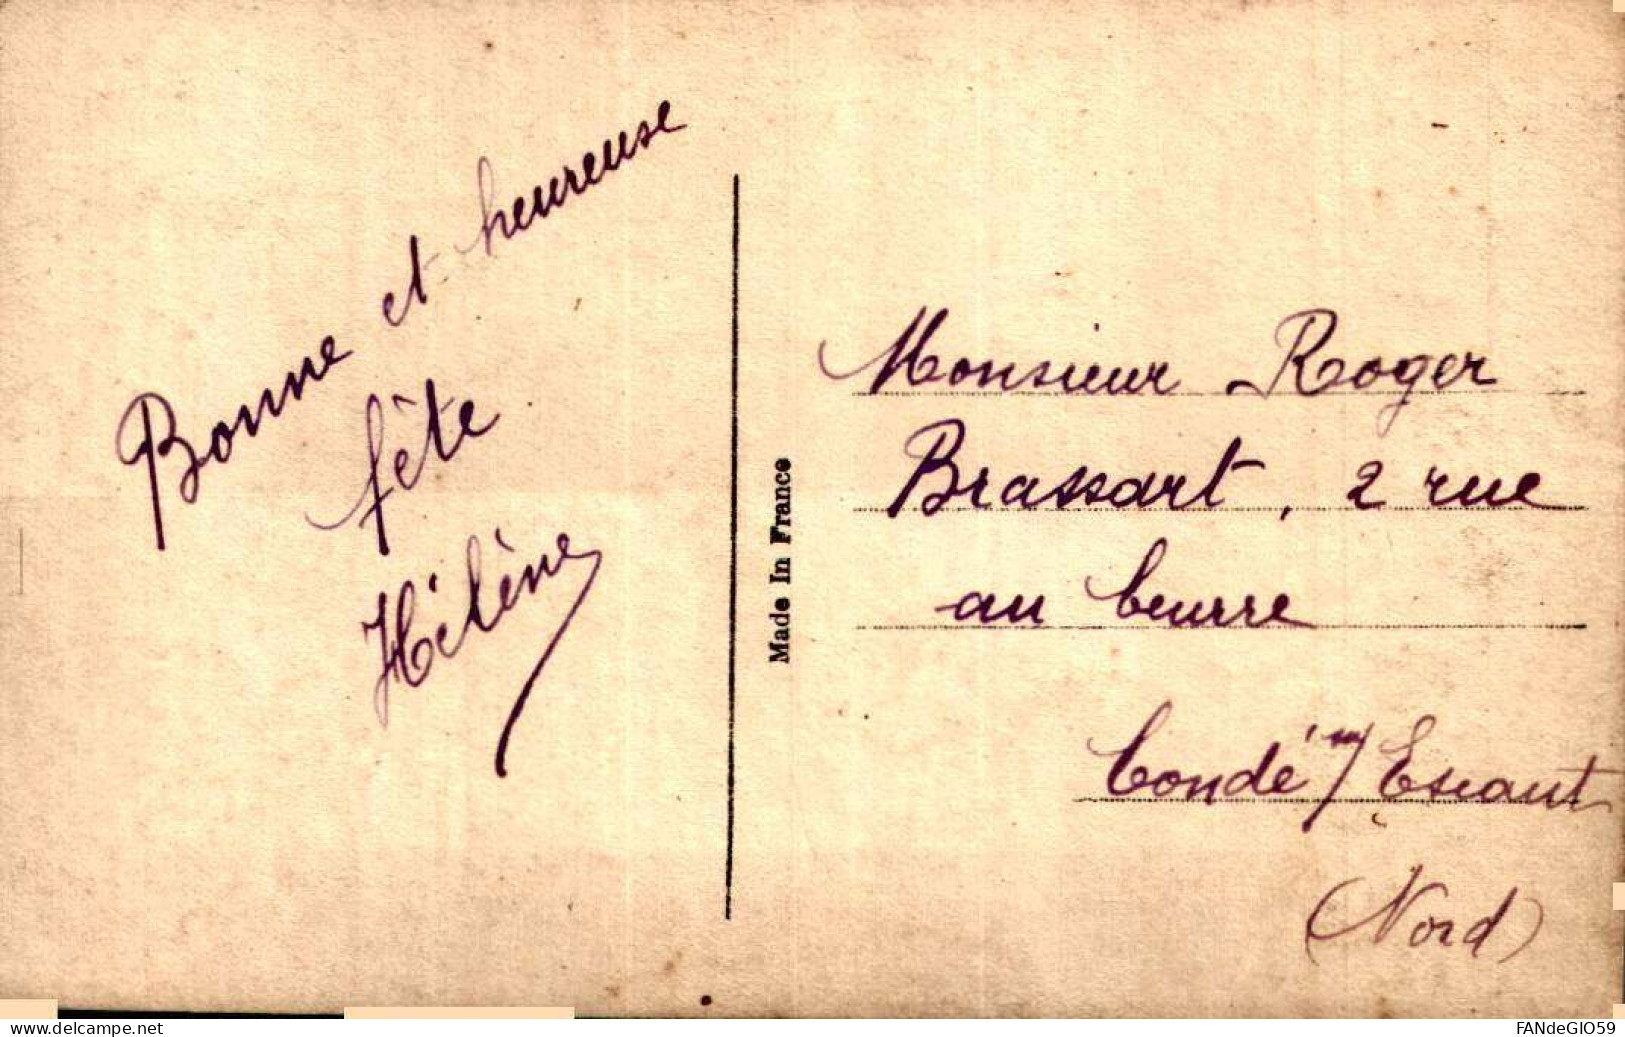 Bonne et heureuse
fête
Hélène
Made In France
Monsieur Roger
Brassart, 2 rue
au beurre
Condé sur/Escaut
(Nord)
www.delcampe.net
FANdeGIO59